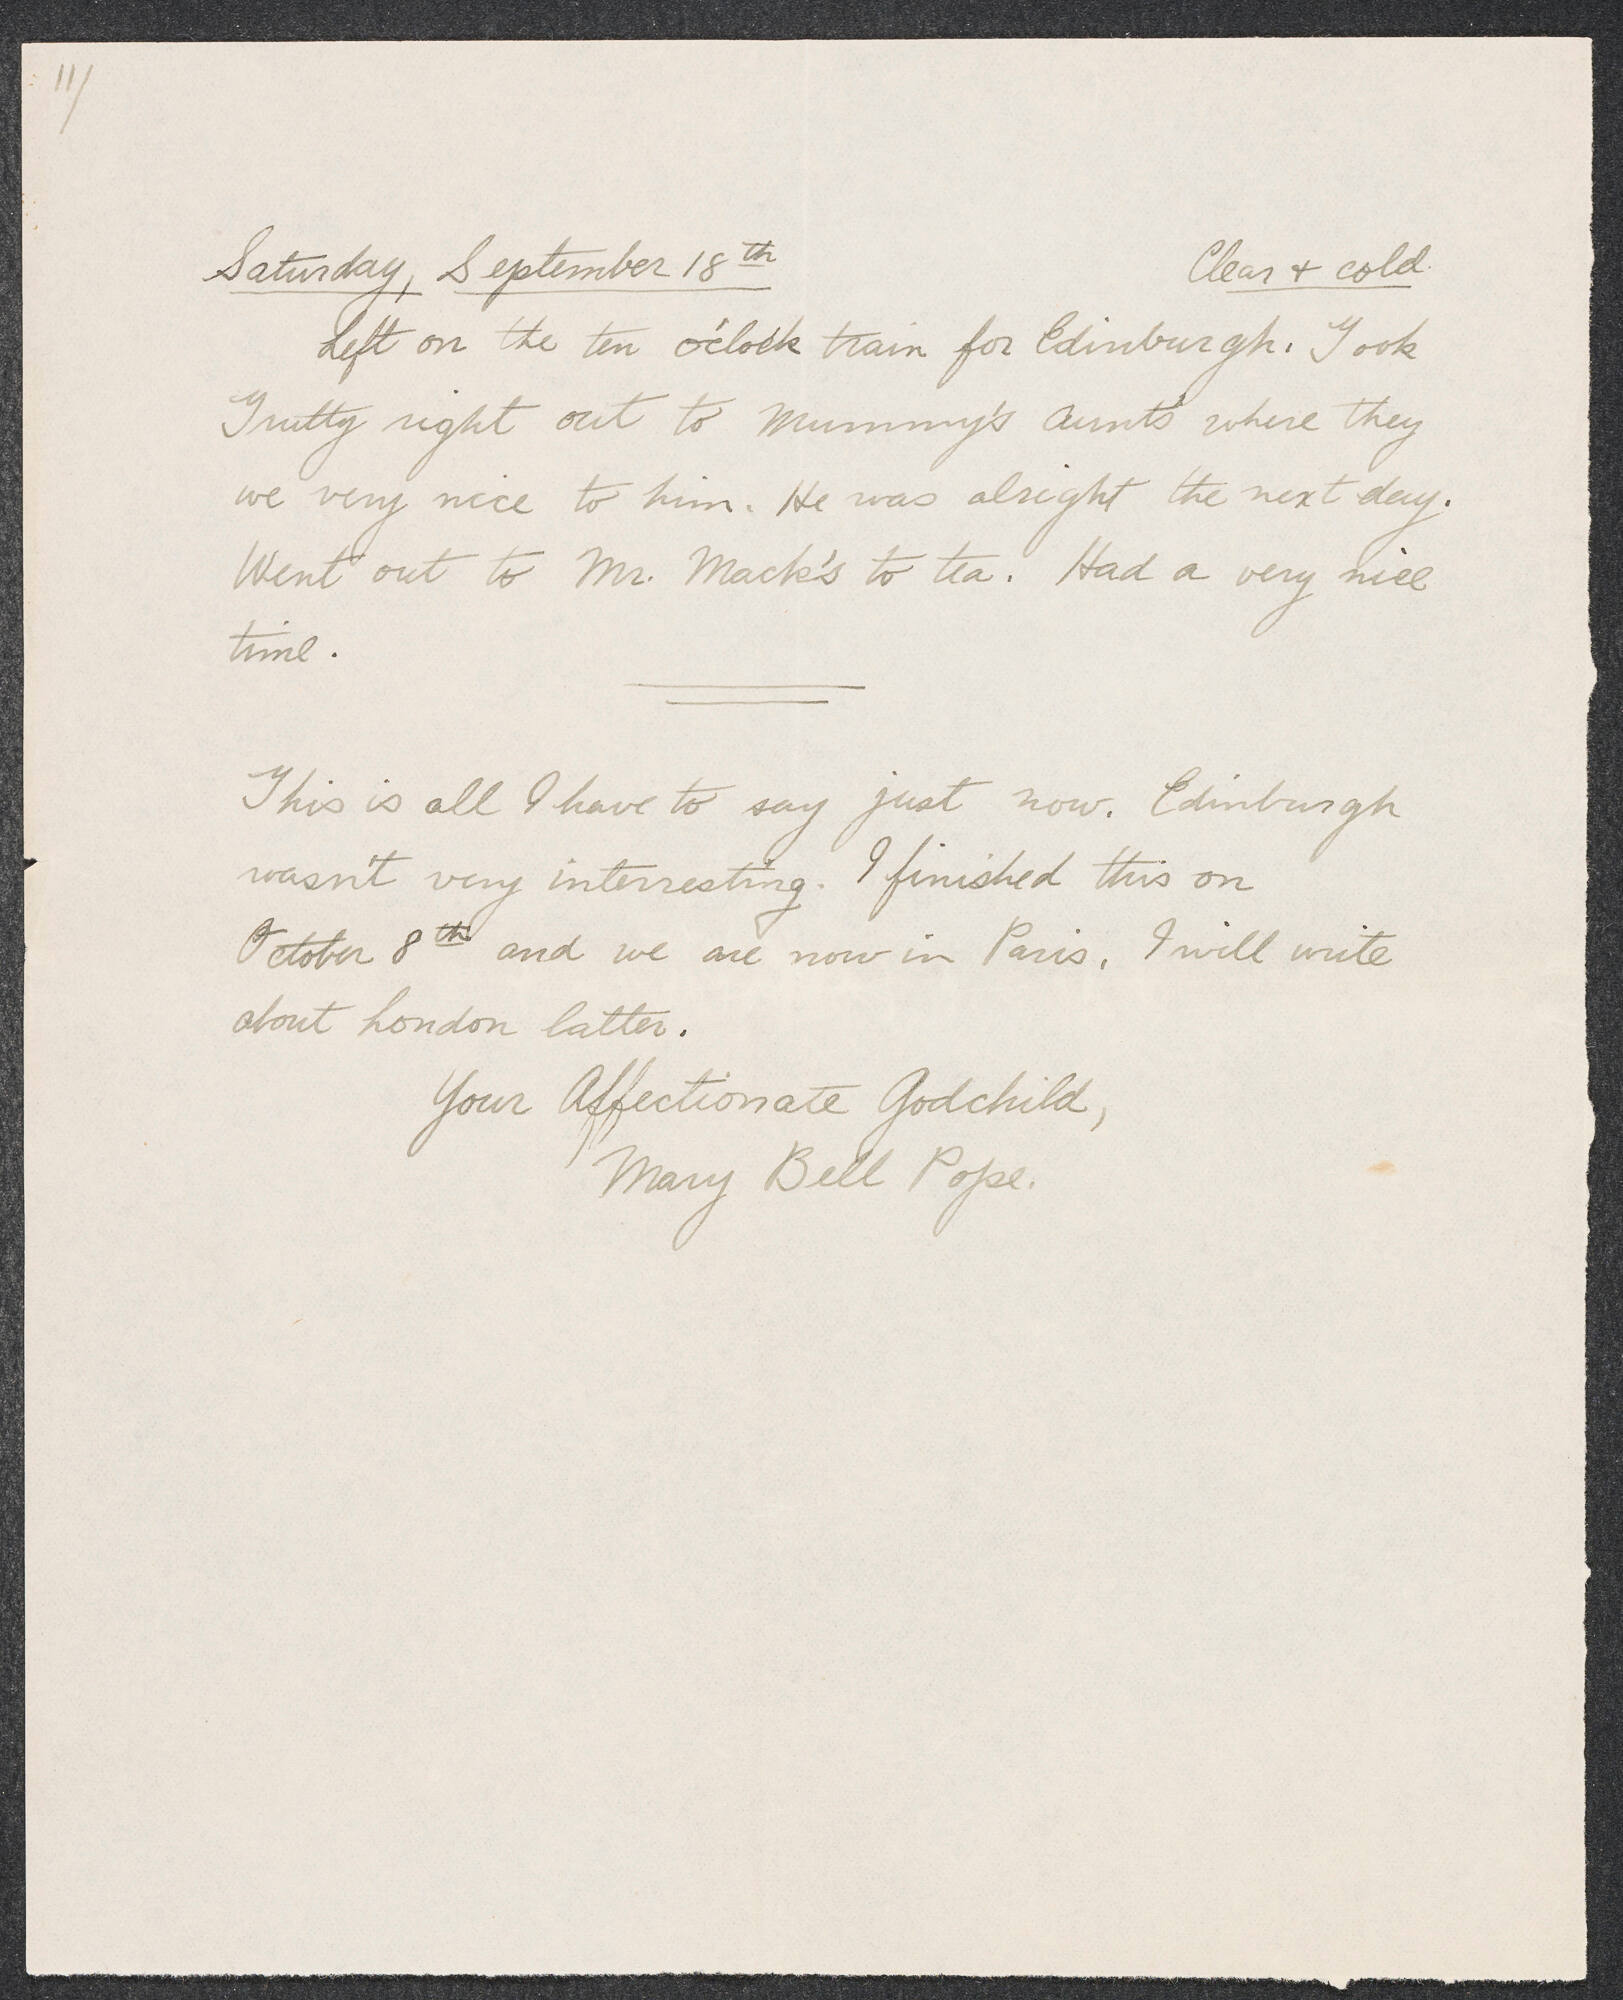 11/
Saturday, September 18th Clear + cold.
Left on the ten o'clock train for Edinburgh. Took
Trutty right out to Mummy's aunts' where they
we very nice to him. He was alright the next day.
Went out to Mr. Mack's to tea. Had a very nice
time.
This is all I have to say just now. Edinburgh
wasn't very interresting. I finished this on
October 8th and we are now in Paris. I will write
about London latter.
Your Affectionate Godchild,
Mary Bell Pope.